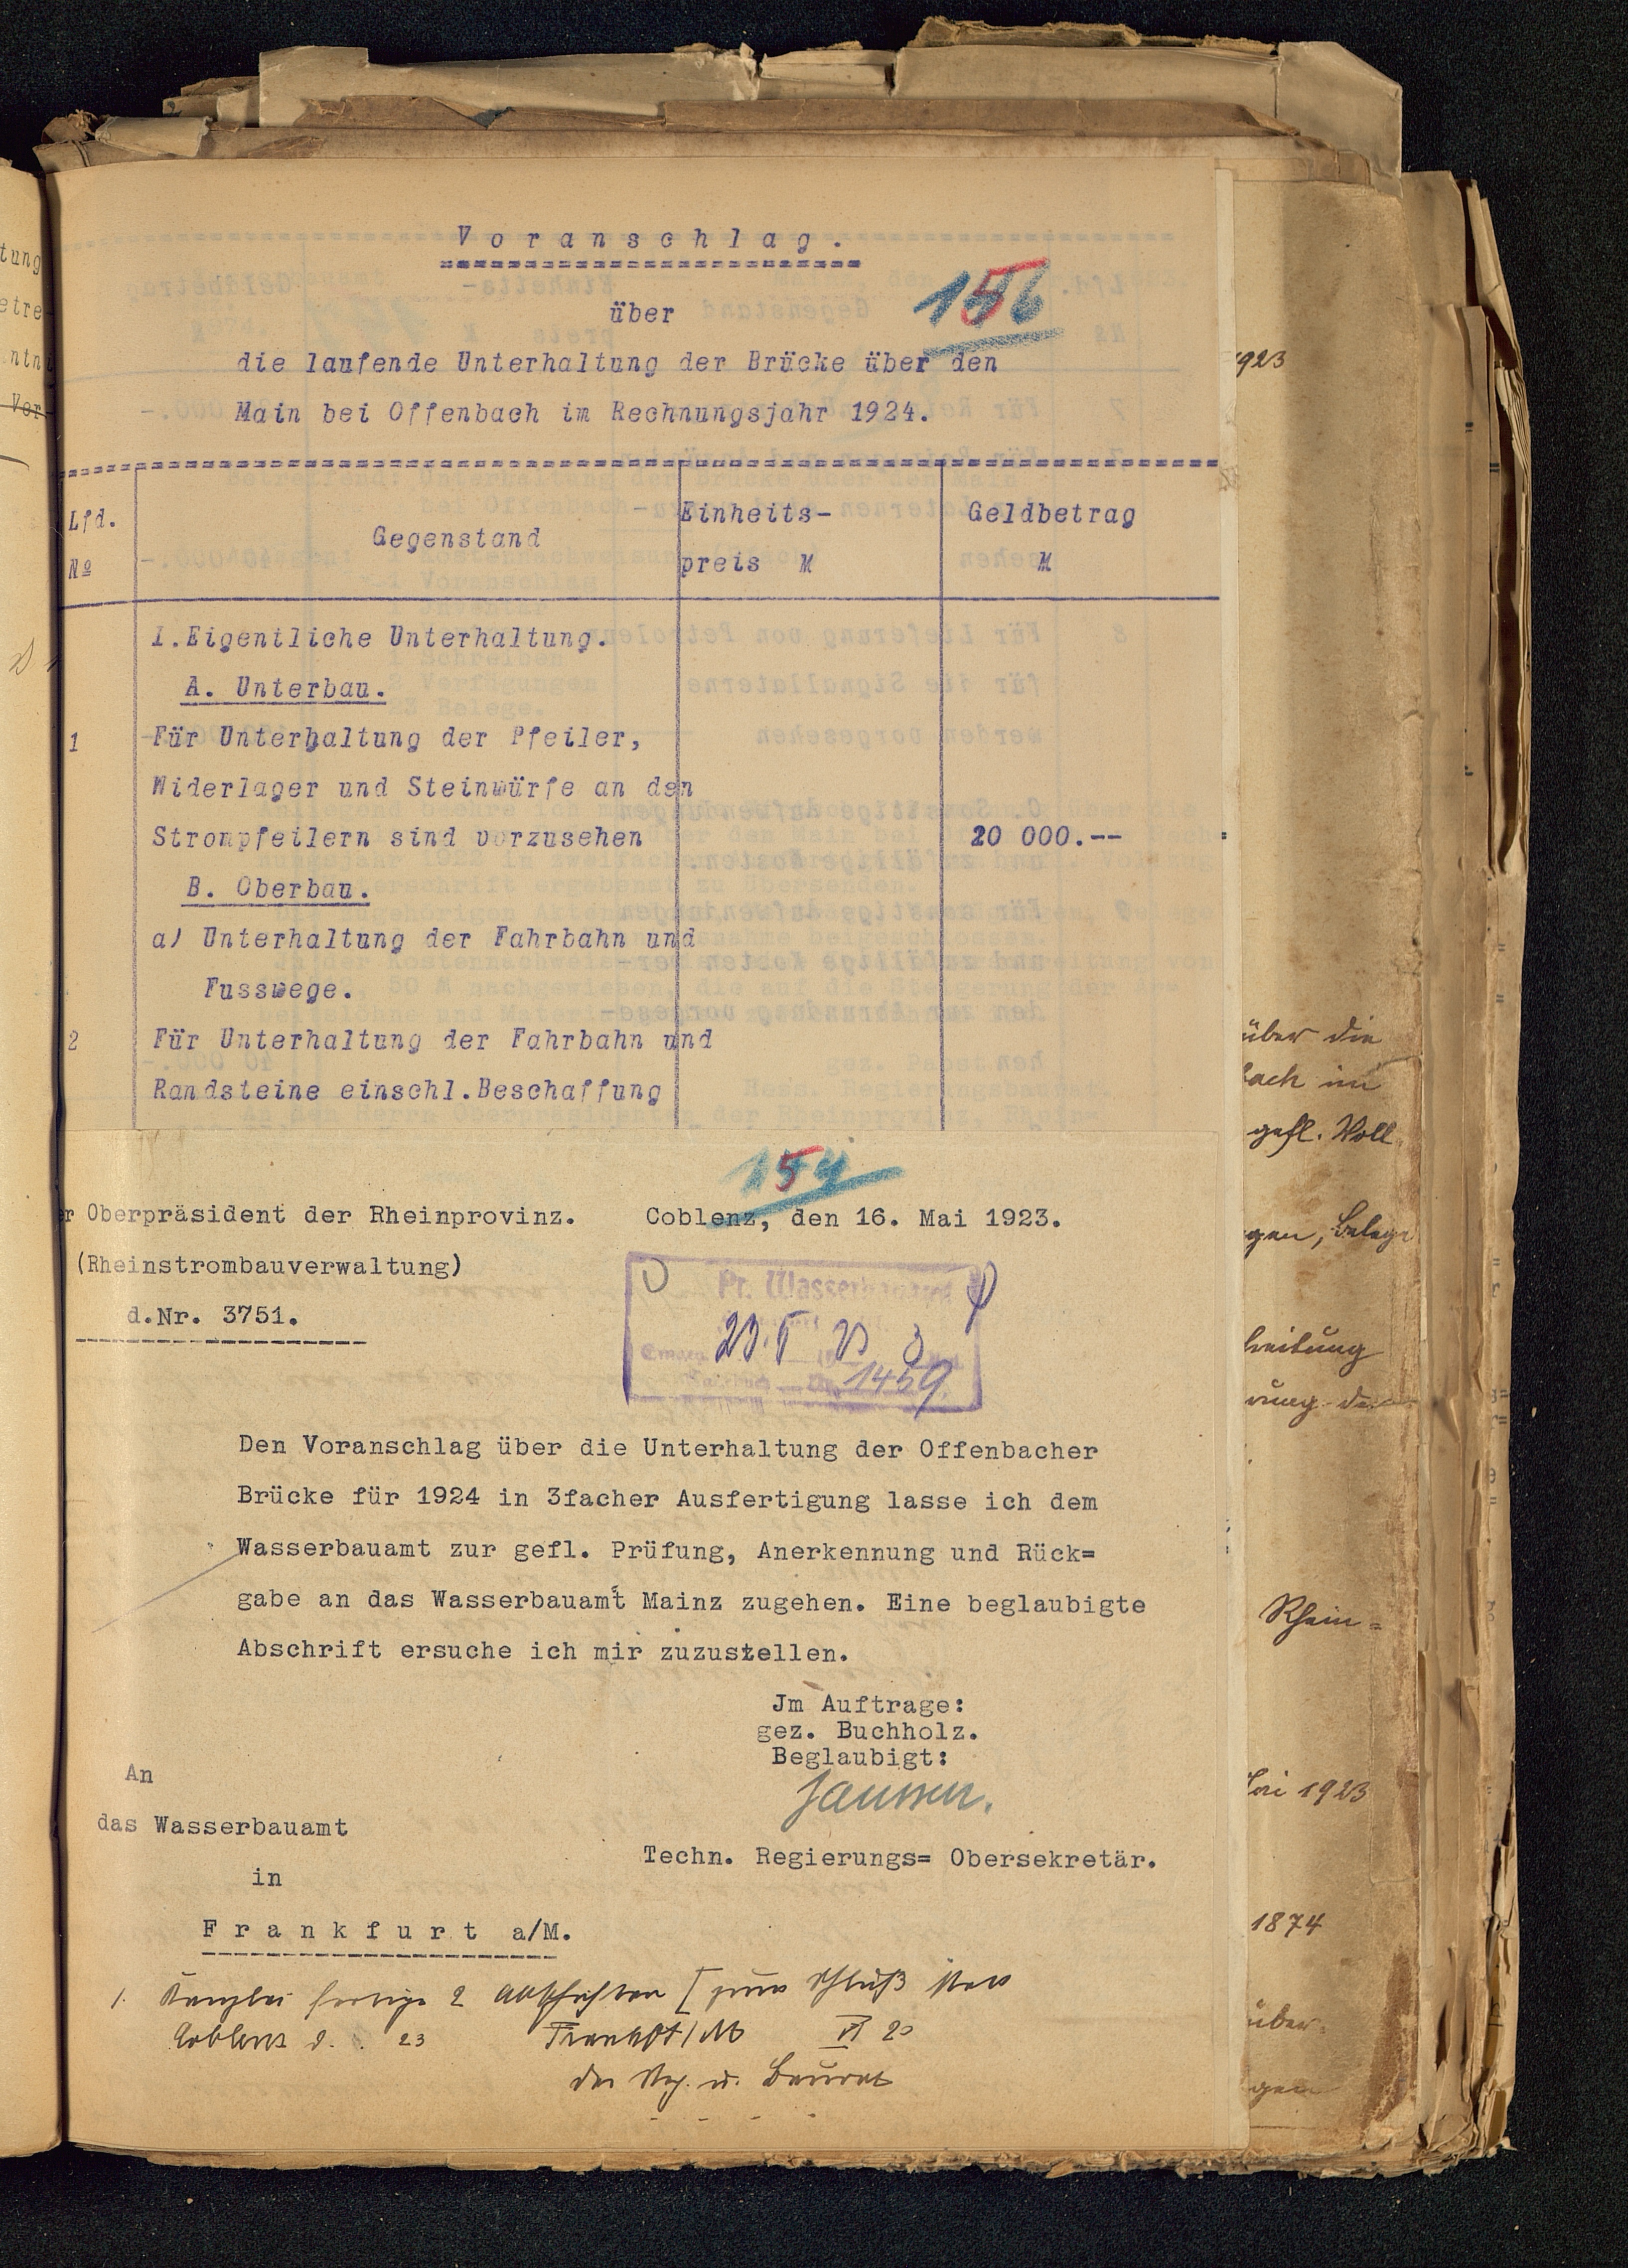 Voranschlag.
156
über
die laufende Unterhaltung der Brücke über den
Main bei Offenbach im Rechnungsjahr 1924.
Lfd.
№
Gegenstand
Einheits-
preis M
Geldbetrag
M
I.Eigentliche Unterhaltung.
A. Unterbau.
1 Für Unterhaltung der Pfeiler,
Widerlager und Steinwürfe an den
Strompfeilern sind vorzusehen 20 000.--
B. Oberbau.
a) Unterhaltung der Fahrbahn und
Fusswege.
2 Für Unterhaltung der Fahrbahn und
Randsteine einschl.Beschaffung
154
r Oberpräsident der Rheinprovinz. Coblenz, den 16. Mai 1923.
(Rheinstrombauverwaltung)
d.Nr. 3751.
Pr. Wasserbauamt
23. V 23
1459
Den Voranschlag über die Unterhaltung der Offenbacher
Brücke für 1924 in 3facher Ausfertigung lasse ich dem
Wasserbauamt zur gefl. Prüfung, Anerkennung und Rück=
gabe an das Wasserbauamt Mainz zugehen. Eine beglaubigte
Abschrift ersuche ich mir zuzustellen.
Jm Auftrage:
gez. Buchholz.
Beglaubigt:
Janssen.
Techn. Regierungs= Obersekretär.
An
das Wasserbauamt
in
Frankfurt a/M.
1. Kanzlei fertige 2 Abschriften
Coblenz d. 23 Frankft/M VI 23
Der Reg. u. Baurat
tung
etre
ntni
Ver-
1923
über die
bach im
gefl. Voll
gen, Belege
breitung
rung de
Rhein=
1923
1874
über
gen